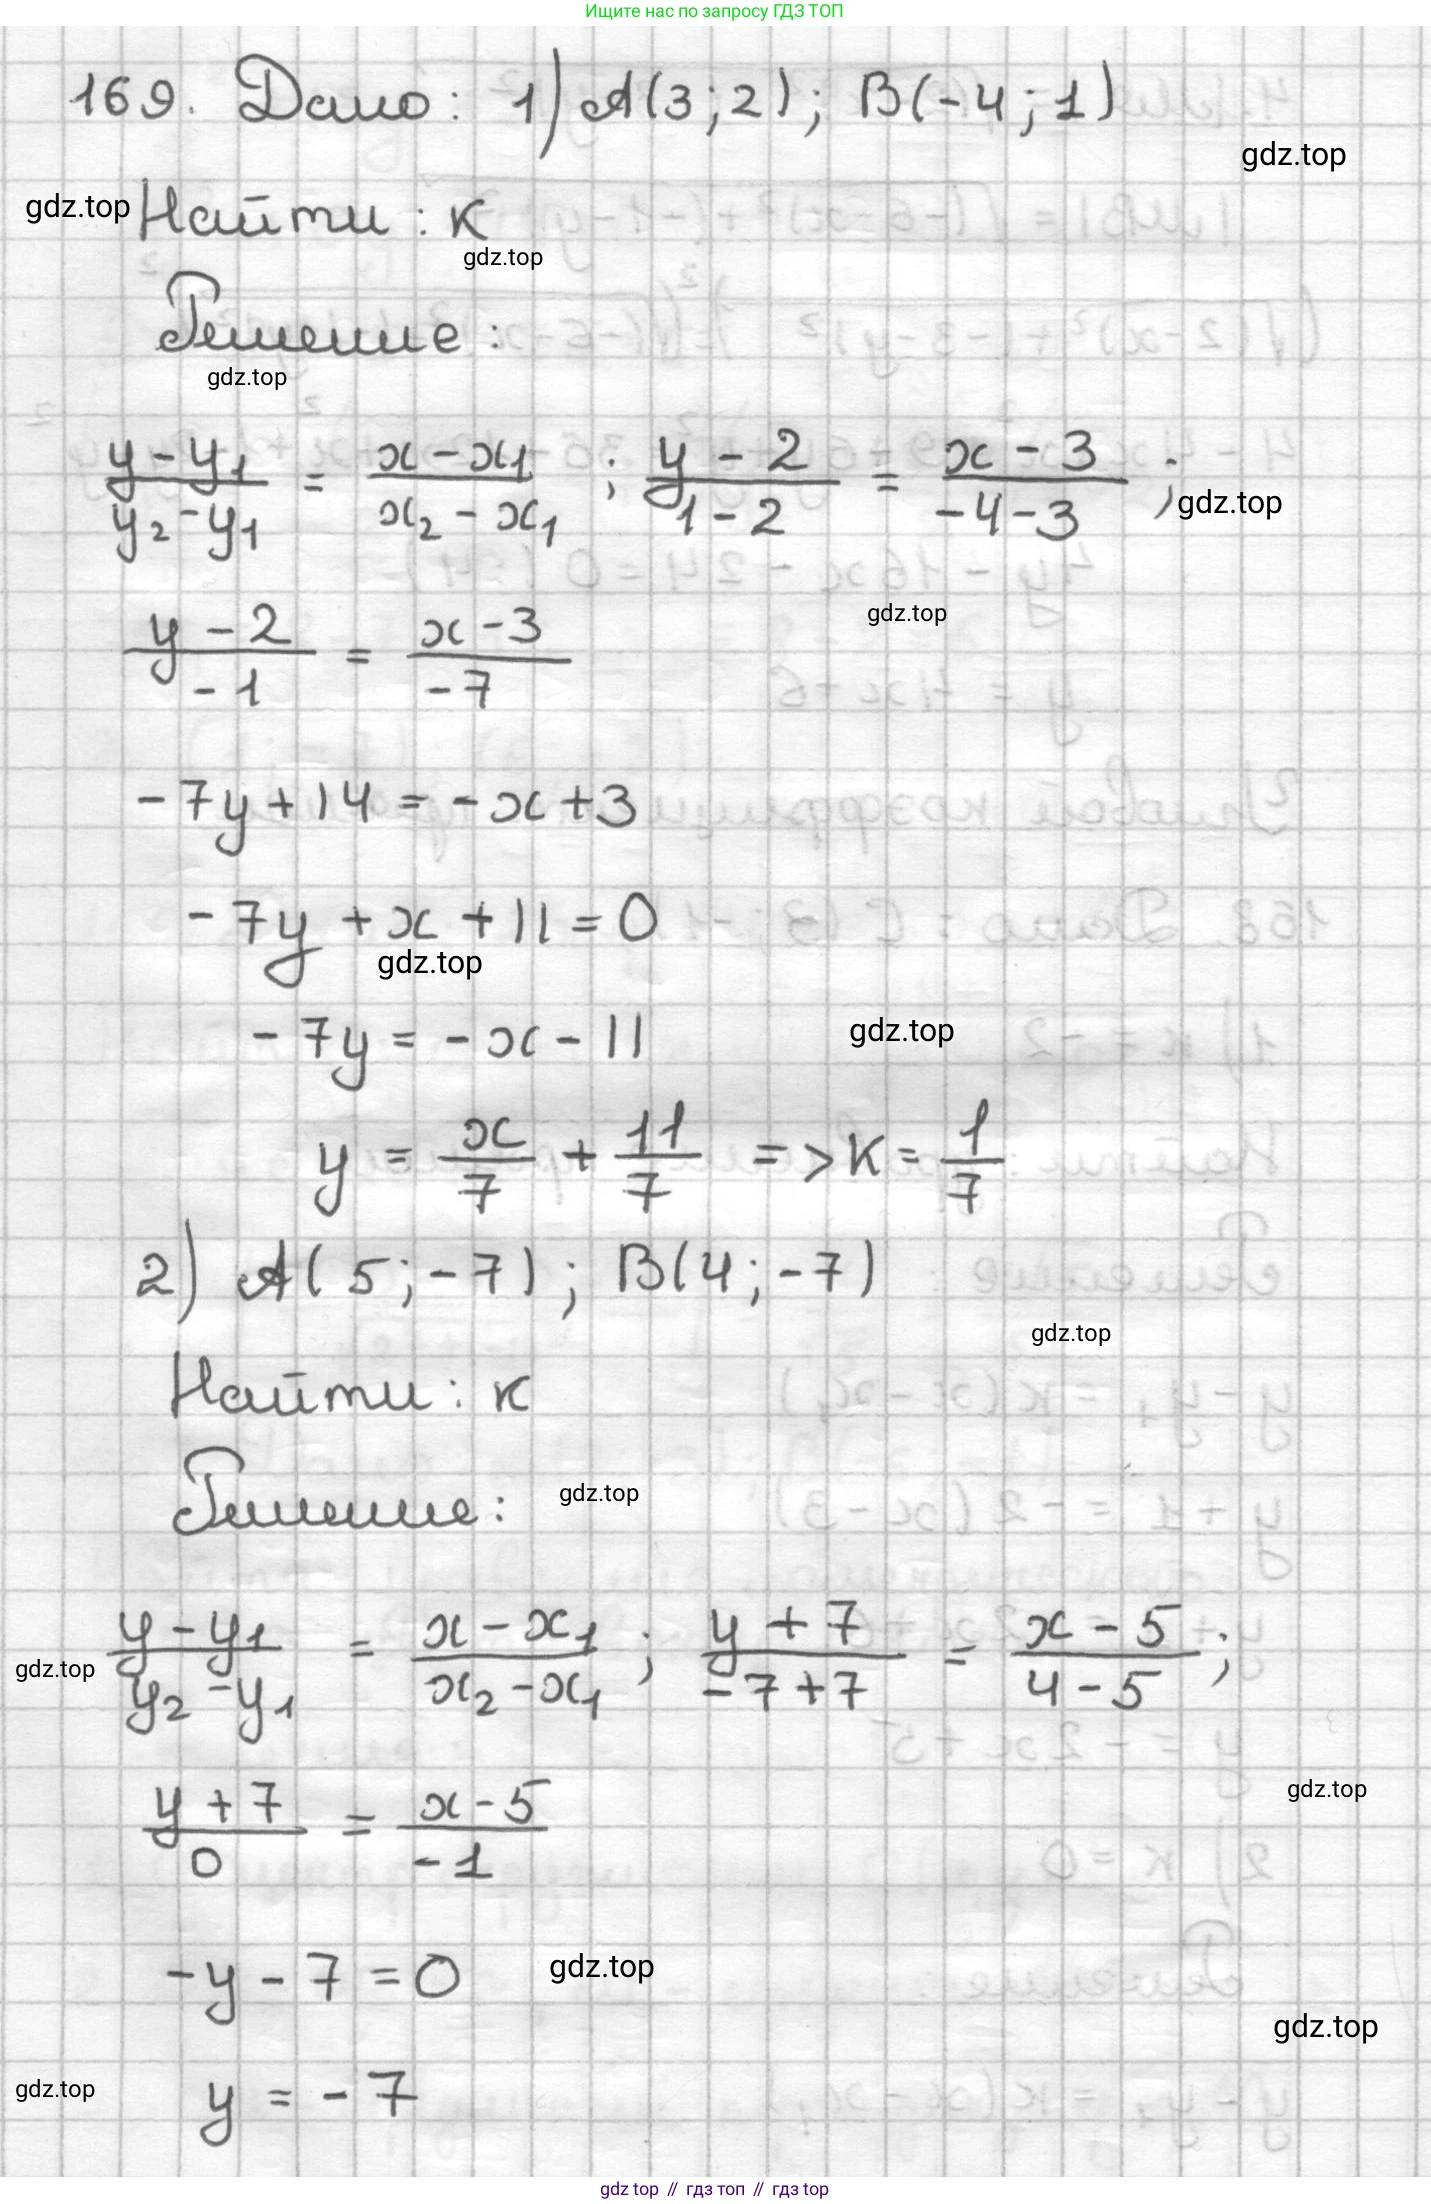 Ищите нас по запросу ГДЗ ТОП
169. Дано: 1) A(3;2); B(-4;1)
gdz.top
gdz.top
Найти: к
gdz.top
Решение:
gdz.top
(y-y₁)/(y₂-y₁) = (x-x₁)/(x₂-x₁); (y-2)/(1-2) = (x-3)/(-4-3);
gdz.top
gdz.top
(y-2)/(-1) = (x-3)/(-7)
-7y+14=-x+3
-7y+x+11=0
gdz.top
gdz.top
-7y=-x-11
y = x/7 + 11/7 => к = 1/7
2) A(5;-7); B(4;-7)
gdz.top
Найти: к
gdz.top
Решение:
(y-y₁)/(y₂-y₁) = (x-x₁)/(x₂-x₁); (y+7)/(-7+7) = (x-5)/(4-5);
gdz.top
gdz.top
(y+7)/0 = (x-5)/(-1)
-y-7=0
gdz.top
gdz.top
gdz.top
y=-7
gdz top // гдз топ // гдз top